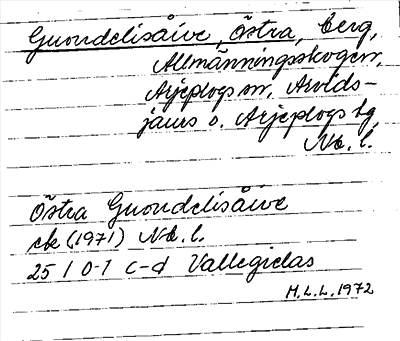 Guondelisåive, Östra, berg,
Allmänningsskogen,
Arjeplogs sn, Arvids-
jaurs o. Arjeplogs tg,
Nb. l.
Östra Guondelisåive
ek (1971) Nb. l.
25 I 0-1 c-d Vallegielas
H.L.L. 1972